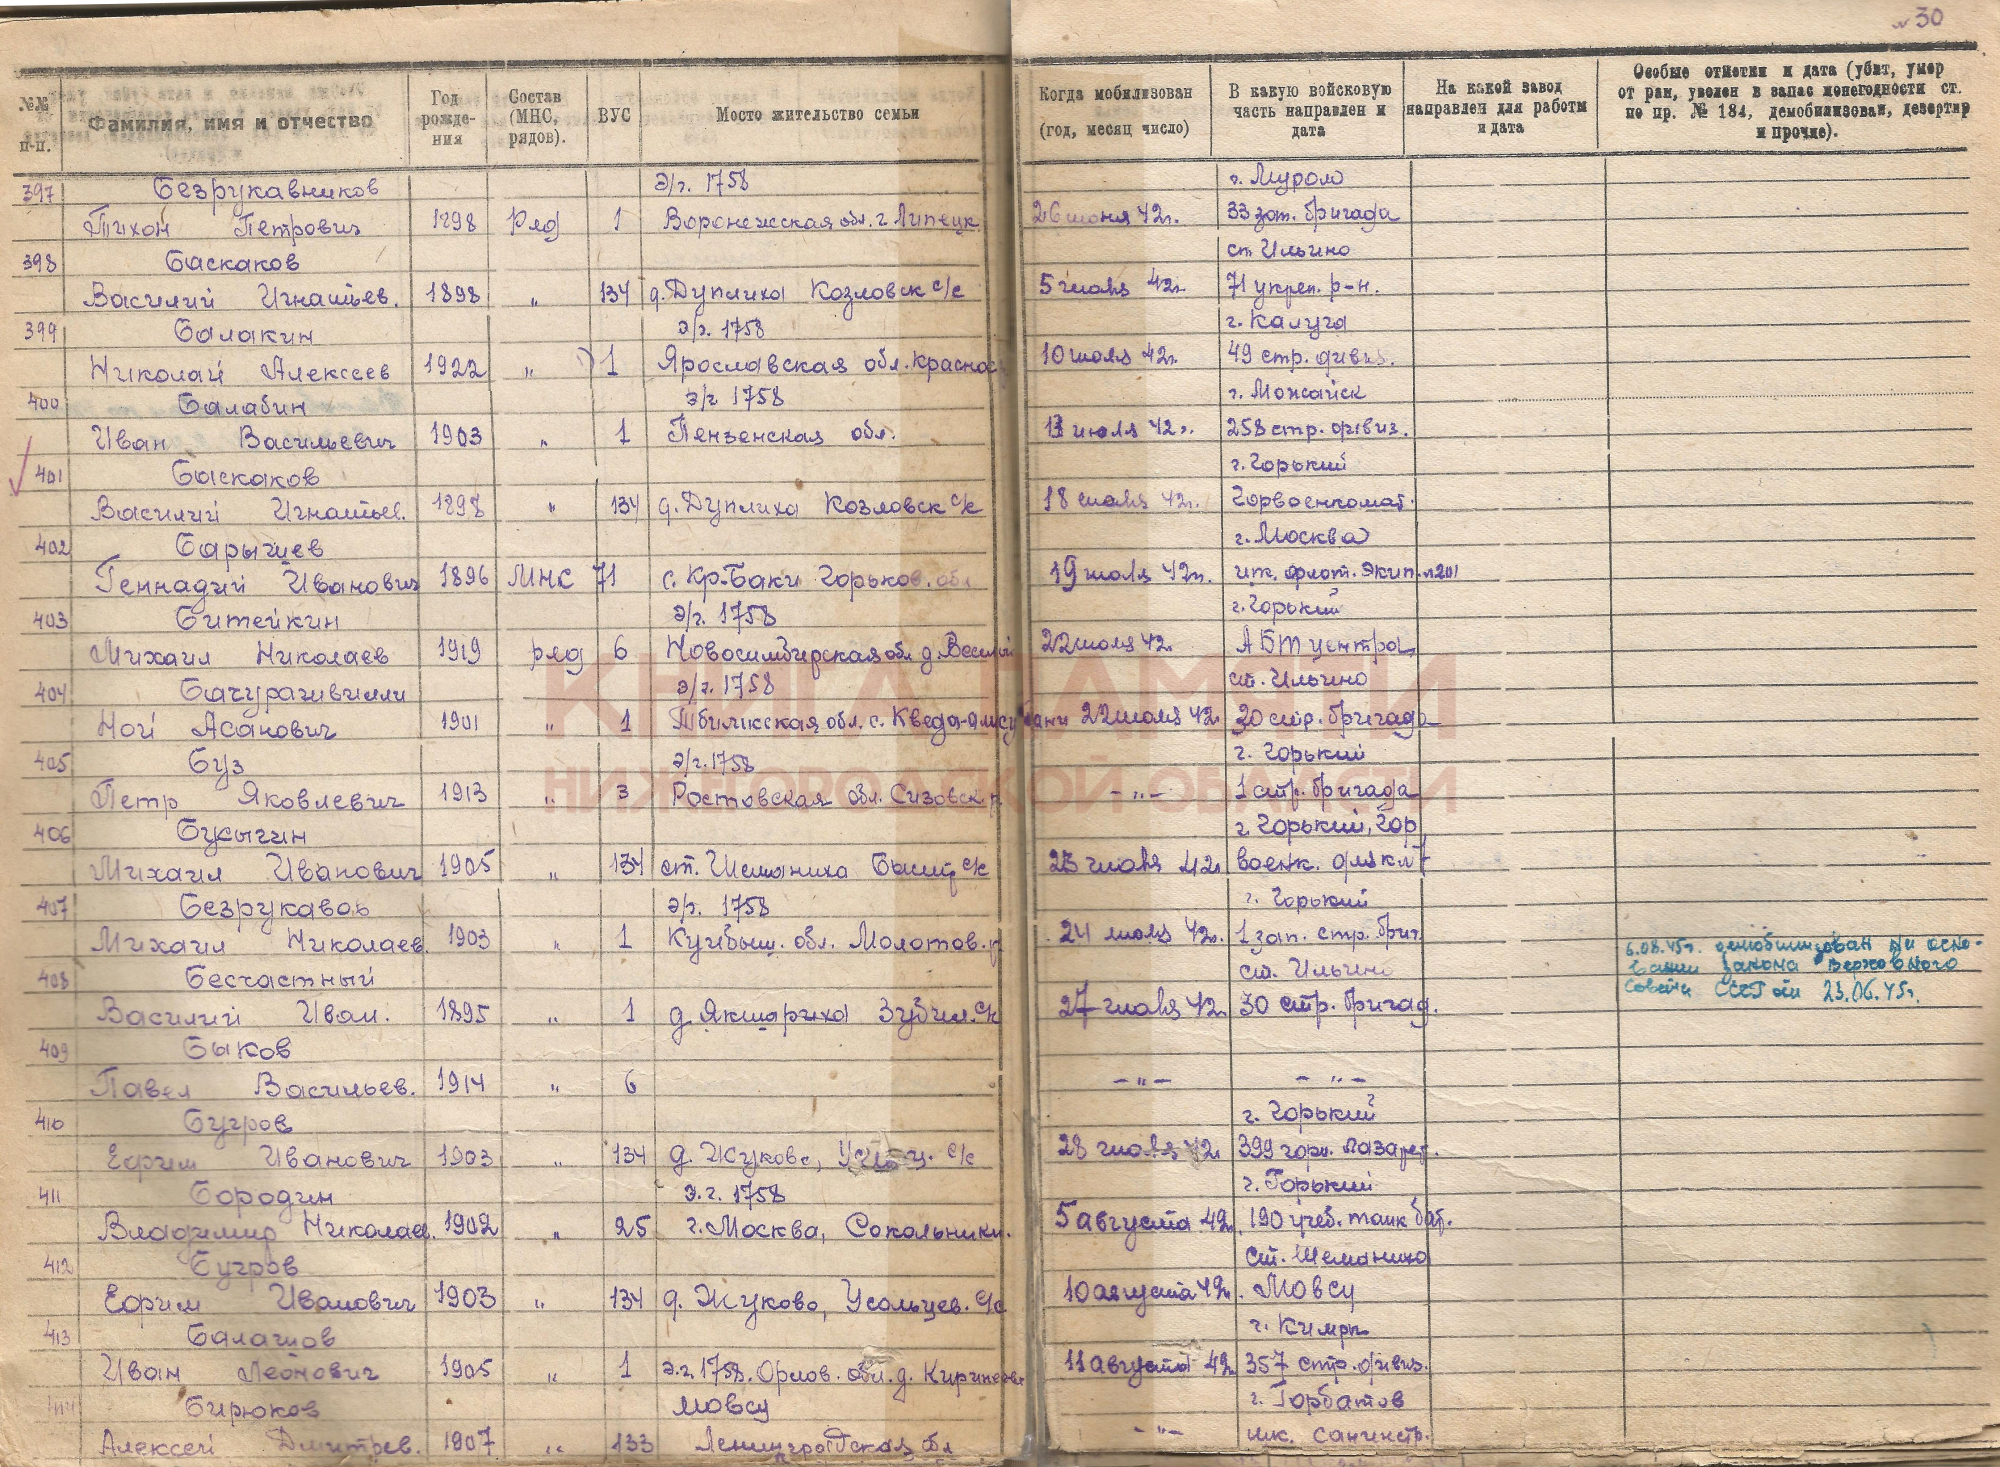 30
№№ п-п. Фамилия, имя и отчество Год рожде-ния Состав (МНС, рядов). ВУС Место жительство семьи Когда мобилизован (год, месяц число) В какую войсковую часть направлен и дата На какой завод направлен для работы и дата Особые отметки и дата (убит, умер от ран, уволен в запас по негодности ст. по пр. № 184, демобилизован, дезертир и прочие).
397 Безрукавников э/г. 1758 г. Муром
Тихон Петрович 1898 Ряд 1 Воронежская обл. г. Липецк 26 июня 42г. 33 зап. бригада
398 Баскаков ст. Ильино
Василий Игнатьев. 1898 „ 134 д. Дуплиха Козловск с/с 5 июля 42г. 71 укреп. р-н.
399 Балакин э/г. 1758 г. Калуга
Николай Алексеев 1922 „ 1 Ярославская обл. Краснос 10 июля 42г. 49 стр. дивиз.
400 Балабин э/г 1758 г. Можайск
Иван Васильевич 1903 „ 1 Пензенская обл. 13 июля 42г. 258 стр. дивиз.
401 Баскаков г. Горький
Василий Игнатьев. 1898 „ 134 д. Дуплиха Козловск с/с 18 июля 42г. Горвоенкомат.
402 Барышев г. Москва
Геннадий Иванович 1896 МНС 71 с. Кр. Баки Горьков. обл 19 июля 42г. флот. экип.
403 Битейкин э/г. 1758 г. Горький
Михаил Николаев 1919 ряд 6 Новосимбирская обл. д. Веселый 22 июля 42. АБТ центра
404 Бачурашвилли э/г. 1758 ст. Ильино
Ной Асанович 1901 „ 1 Тбилисская обл. с. 22 июля 42г. 30 стр. бригада
405 Буз э/г. 1758 г. Горький
Петр Яковлевич 1913 „ 3 Ростовская обл. Сизовск. р - „ - 1 стр. бригада
406 Бусыгин г. Горький, Гор
Михаил Иванович 1905 „ 134 ст. Шеманиха с/с 23 июля 42г. военк.
407 Безруков э/г. 1758 г. Горький
Михаил Николаев. 1903 „ 1 Куйбыш. обл. Молотов. р 24 июля 42г. 1 зап. стр. бриг.
6.08.45г. демобилизован на осно-
408 Бесчастный ст. Ильино вании закона Верховного
Василий Иван. 1895 „ 1 д. Якшариха Зубил. с/с 27 июля 42г. 30 стр. бригад. Совета СССР от 23.06.45г.
409 Быков
Павел Васильев. 1914 „ 6 - „ - - „ -
410 Бугров г. Горький
Ефим Иванович 1903 „ 134 д. Жуково, с/с 28 июля 42г. 399 лазарет.
411 Бородин э.г. 1758 г. Горький
Владимир Николаев. 1902 „ 25 г. Москва, Сокольники. 5 августа 42г. 190 учеб. танк бат.
412 Бугров ст. Шеманиха
Ефим Иванович 1903 „ 134 д. Жуково, Усольцев. с/с 10 августа 42г. Мовсу
413 Балашов г. Кимры
Иван Леонович 1905 „ 1 э.г. 1758. Орлов. обл. д. 11 августа 42г. 357 стр. дивиз.
414 Бирюков Мовсу г. Горбатов
Алексей Дмитрев. 1907 „ 133 Ленинградская обл - „ - шк. санинстр.
КНИГА ПАМЯТИ
НИЖЕГОРОДСКОЙ ОБЛАСТИ